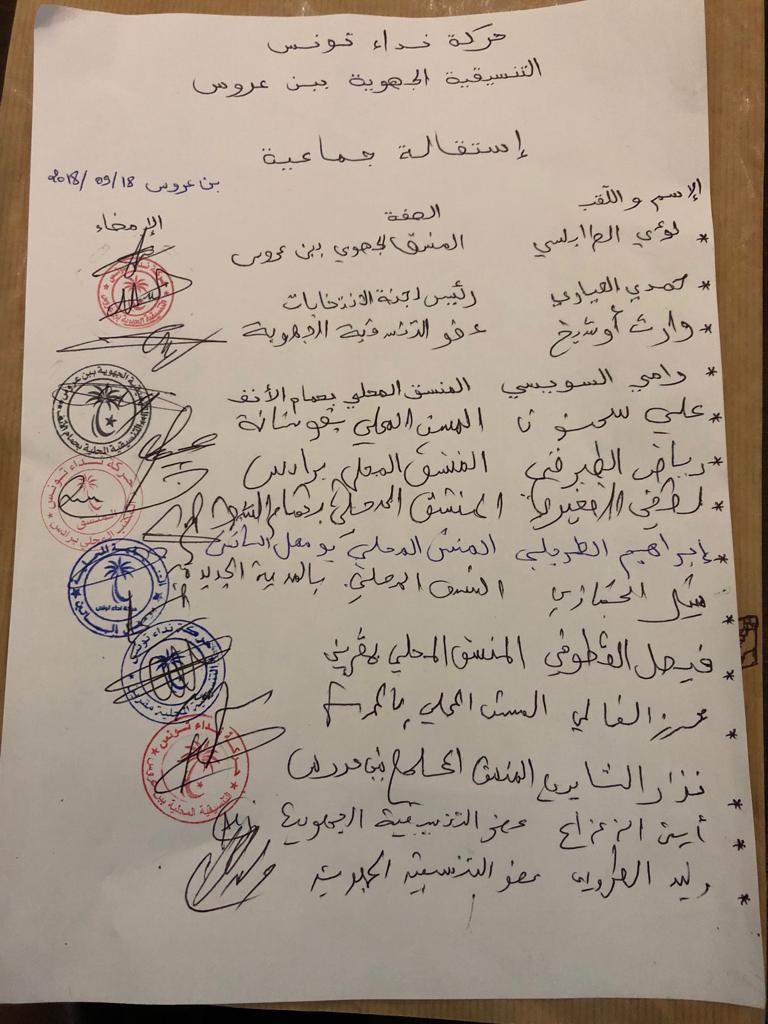 حركة نداء تونس
التنسيقية الجهوية ببن عروس
إستقالة جماعية
بن عروس 2018/09/18
الإسم و اللقب الصفة الإمضاء
* لؤي الطرابلسي المنسق الجهوي ببن عروس
* حمدي العياري رئيس لجنة الانتخابات
* وارث أوشيخ عضو التنسقية الجهوية
* رامي السويسي المنسق المحلي بحمام الأنف
* علي المنسق المحلي بفوشانة
* رياض الطير في المنسق المحلي برادس
* لطفي الصغير المنسق المحلي بحمام الشط
* إبراهيم الطربلسي المنسق المحلي بومهل البساتين
* نبيل الخبازي المنسق المحلي بالمدينة الجديدة
* فيصل القطوفي المنسق المحلي بمقرين
* محرز الغالي المنسق المحلي بالمروج
* نزار الشايبي المنسق المحلي ببن عروس
* أيمن الزعزاع عضو التنسيقية الجهوية
* وليد عضو التنسيقية الجهوية